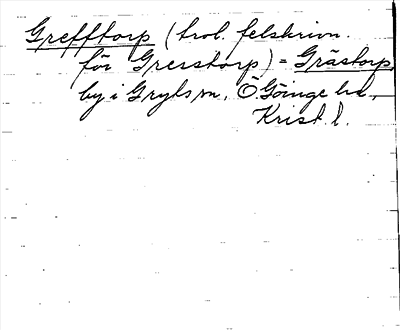 Grefftorp (trol. felskrivn.
för Gresstorp) = Grästorp,
by i Gryts sn, Ö Göinge hd,
Krist. l.